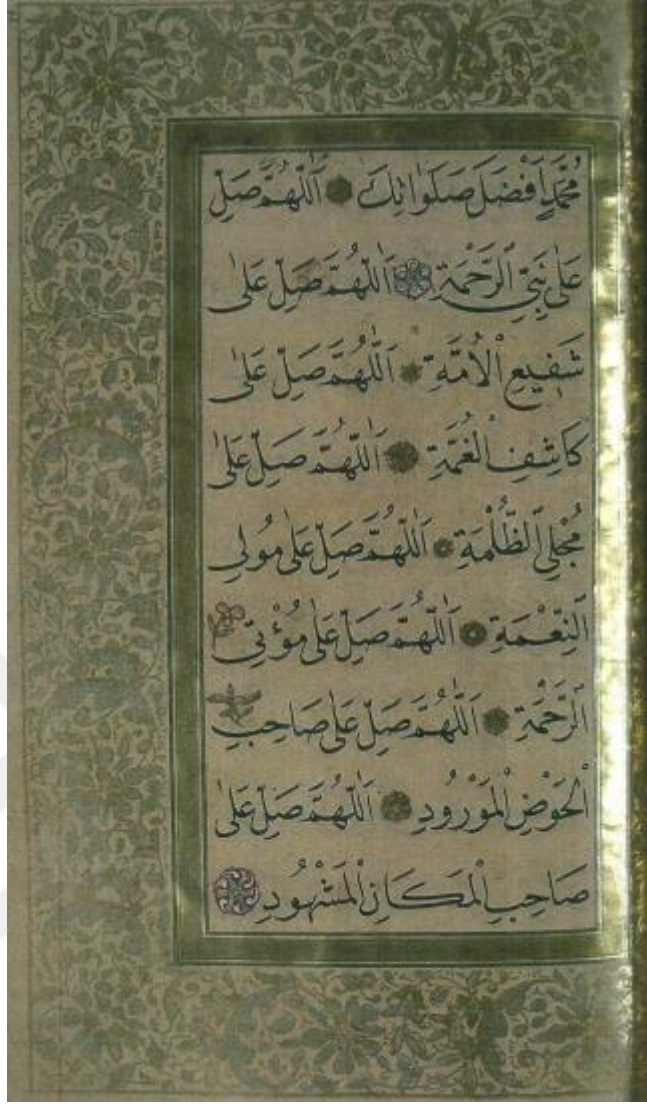 مُحَمَّدٍ أَفْضَلَ صَلَوَاتِكَ اَللّٰهُمَّ صَلِّ
عَلٰى نَبِيِّ الرَّحْمَةِ اَللّٰهُمَّ صَلِّ عَلٰى
شَفِيعِ الْأُمَّةِ اَللّٰهُمَّ صَلِّ عَلٰى
كَاشِفِ الْغُمَّةِ اَللّٰهُمَّ صَلِّ عَلٰى
مُجْلِي الظُّلْمَةِ اَللّٰهُمَّ صَلِّ عَلٰى مُولِي
النِّعْمَةِ اَللّٰهُمَّ صَلِّ عَلٰى مُؤْتِي
الرَّحْمَةِ اَللّٰهُمَّ صَلِّ عَلٰى صَاحِبِ
الْحَوْضِ الْمَوْرُودِ اَللّٰهُمَّ صَلِّ عَلٰى
صَاحِبِ الْمَكَانِ الْمَشْهُودِ